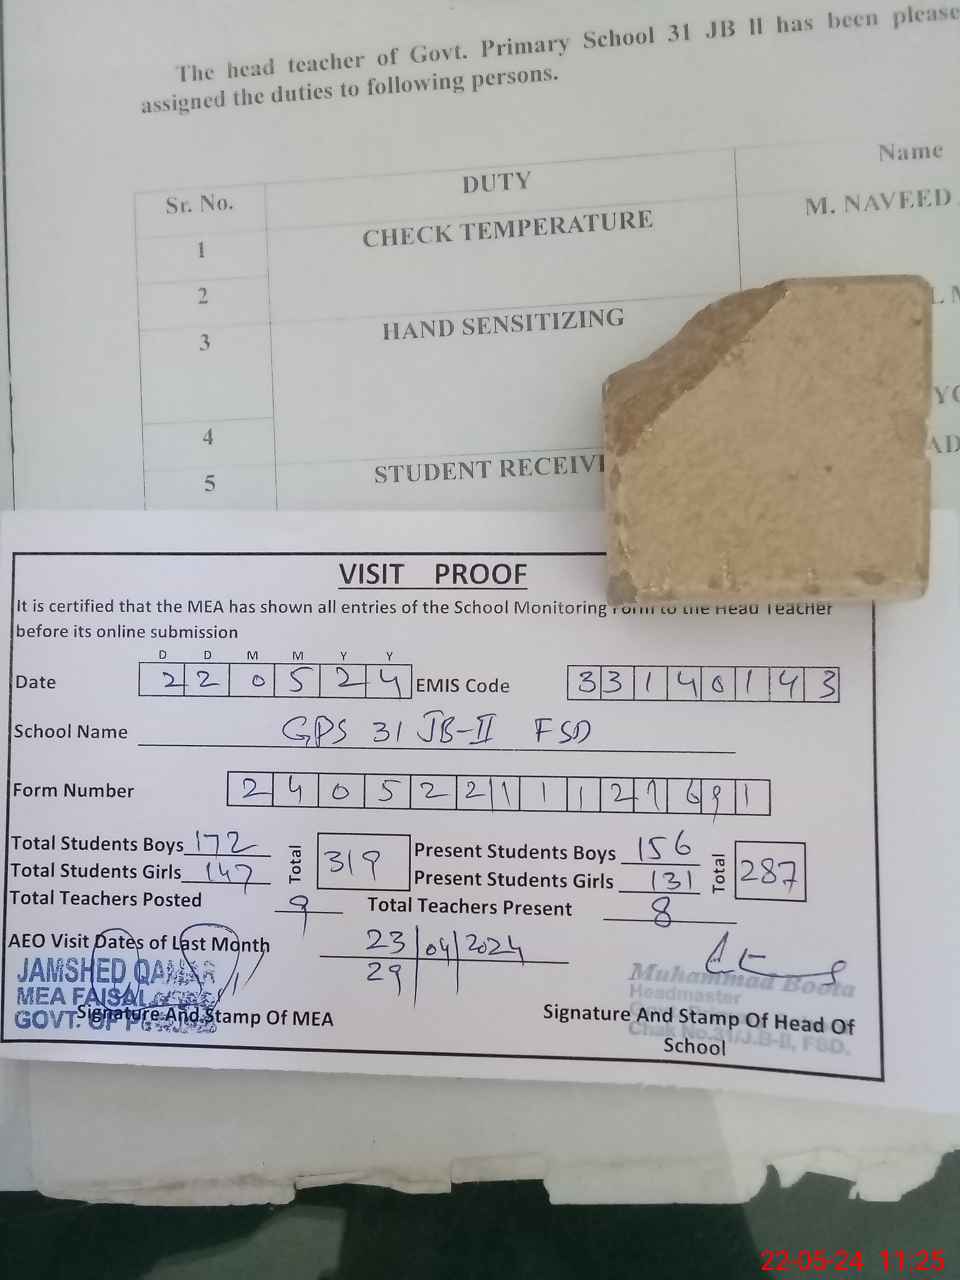 The head teacher of Govt. Primary School 31 JB II has been please
assigned the duties to following persons.
Sr. No. DUTY Name
1 CHECK TEMPERATURE M. NAVEED
2
3 HAND SENSITIZING
4
5 STUDENT RECEIVI
VISIT PROOF
It is certified that the MEA has shown all entries of the School Monitoring Form to the Head Teacher
before its online submission
D D M M Y Y
Date 2 2 0 5 2 4 EMIS Code 3 3 1 4 0 1 4 3
School Name GPS 31 JB-II FSD
Form Number
Total Students Boys 172 Total 319 Present Students Boys 156 Total 287
Total Students Girls 147 Present Students Girls 131
Total Teachers Posted 9 Total Teachers Present 8
AEO Visit Dates of Last Month 23 04 2024
29
JAMSHED QAMAR
MEA FAISAL
GOVT. OF
Signature And Stamp Of MEA
Muhammad Boota
Headmaster
Chak No.31/J.B-II, FSD.
Signature And Stamp Of Head Of
School
22-05-24 11:25